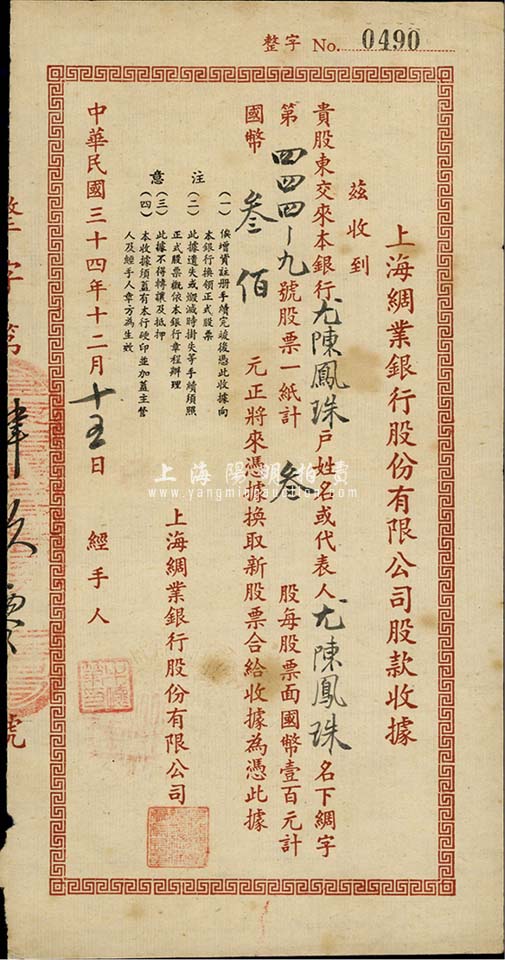 整字 No. 0490
上海綢業銀行股份有限公司股款收據
茲收到
貴股東交來本銀行尤陳鳳珠戶姓名或代表人尤陳鳳珠名下綢字
第四四四一九號股票一紙計 叁 股每股票面國幣壹百元計
國幣 叁佰 元正將來憑據換取新股票合給收據為憑此據
注意
(一) 俟增資註册手續完竣後憑此收據向
本銀行換領正式股票
(二) 此據遺失或燬滅時掛失等手續須照
正式股票概依本銀行章程辦理
(三) 此據不得轉讓及抵押
(四) 本收據須蓋有本行硬印並加蓋主管
人及經手人章方為生效
上海綢業銀行股份有限公司
中華民國三十四年十二月十五日 經手人
整字第 肆 號
上海陽明拍賣
www.yangmingauction.com